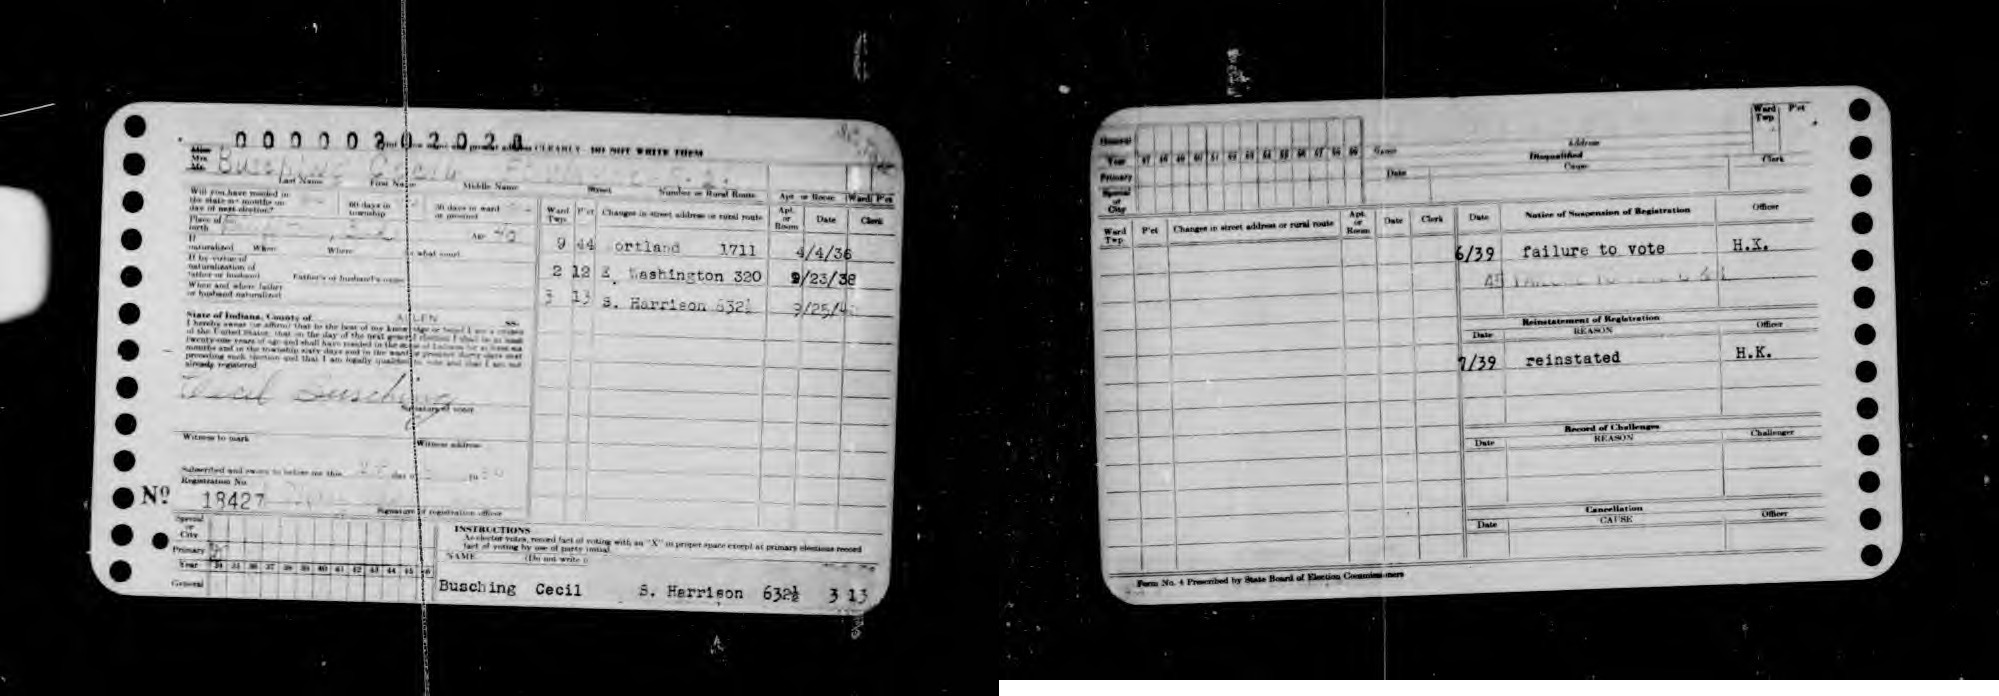 0 0 0 0 0 2 0 2 0 2 0
CLEARLY - DO NOT WRITE FORM
Miss
Mrs.
Mr. Busching Cecil
Last Name First Name Middle Name Street Number or Rural Route Apt. or Room Ward P'ct
Will you have resided in
the state six months on
day of next election?
60 days in
township
30 days in ward
or precinct
Place of
birth
Age 40
If
naturalized When Where In what court
If by virtue of
naturalization of
father or husband Father's or husband's name
When and where father
or husband naturalized
State of Indiana, County of ALLEN SS.
I hereby swear (or affirm) that to the best of my knowledge or belief I am a citizen
of the United States; that on the day of the next general election I shall be at least
twenty-one years of age and shall have resided in the state of Indiana for at least six
months and in the township sixty days and in the ward or precinct thirty days next
preceding such election and that I am legally qualified to vote and that I am not
already registered
Cecil Busching
Signature of voter
Witness to mark Witness address
Subscribed and sworn to before me this day of 19
Registration No.
Nº 18427
Signature of registration officer
Ward
Twp. P'ct Changes in street address or rural route Apt.
or
Room Date Clerk
9 44 ortland 1711 4/4/36
2 12 E. Washington 320 9/23/38
3 13 S. Harrison 632½
Special
or
City
Primary
Year 34 35 36 37 38 39 40 41 42 43 44 45 46
General
INSTRUCTIONS
As elector votes, record fact of voting with an "X" in proper space except at primary elections record
fact of voting by use of party initial.
NAME (Do not write
Busching Cecil S. Harrison 632½ 3 13
General
Year 47 48 49 50 51 52 53 54 55 56 57 58 59
Primary
Special
or
City
Name Address
Ward
Twp P'ct
Disqualified
Date Cause Clerk
Ward
Twp P'ct Changes in street address or rural route Apt.
or
Room Date Clerk
Date Notice of Suspension of Registration Officer
6/39 failure to vote H.K.
Reinstatement of Registration
Date REASON Officer
7/39 reinstated H.K.
Record of Challenges
Date REASON Challenger
Cancellation
Date CAUSE Officer
Form No. 4 Prescribed by State Board of Election Commissioners